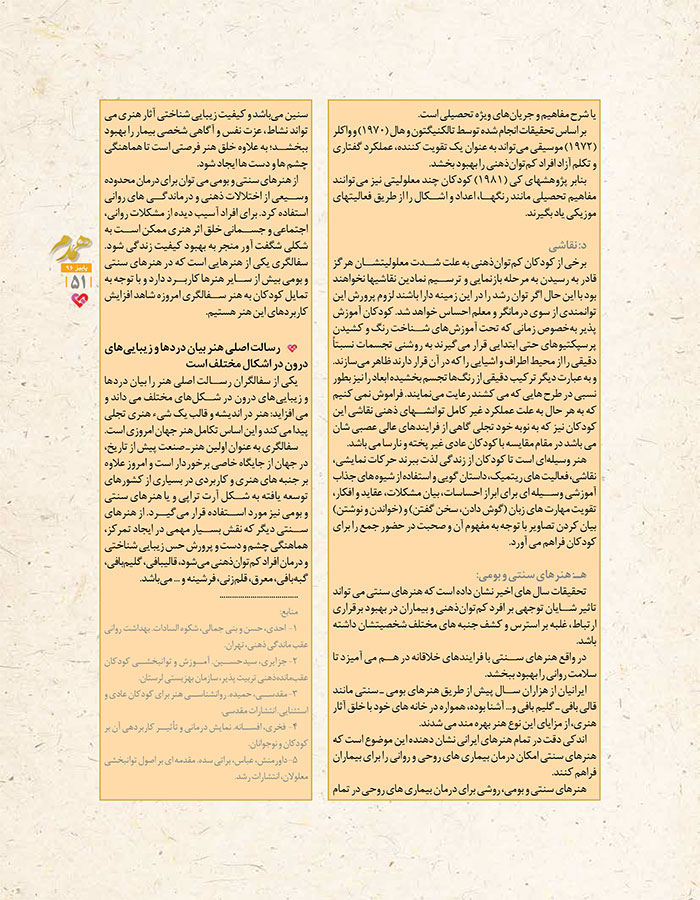 یا شرح مفاهیم و جریان‌های ویژه تحصیلی است.
بر اساس تحقیقات انجام شده توسط تالکنیگتون و هال (۱۹۷۰) و واکلر
(۱۹۷۲) موسیقی می‌تواند به عنوان یک تقویت کننده، عملکرد گفتاری
و تکلم آزاد افراد کم‌توان‌ذهنی را بهبود بخشد.
بنابر پژوهشهای کی (۱۹۸۱) کودکان چند معلولیتی نیز می‌توانند
مفاهیم تحصیلی مانند رنگها، اعداد و اشکال را از طریق فعالیتهای
موزیکی یاد بگیرند.
د: نقاشی
برخی از کودکان کم‌توان‌ذهنی به علت شدت معلولیتشان هرگز
قادر به رسیدن به مرحله بازنمایی و ترسیم نمادین نقاشیها نخواهند
بود با این حال اگر توان رشد را در این زمینه دارا باشند لزوم پرورش این
توانمندی از سوی درمانگر و معلم احساس خواهد شد. کودکان آموزش
پذیر به‌خصوص زمانی که تحت آموزش‌های شناخت رنگ و کشیدن
پرسپکتیوهای حتی ابتدایی قرار می‌گیرند به روشنی تجسمات نسبتاً
دقیقی را از محیط اطراف و اشیایی را که در آن قرار دارند ظاهر می‌سازند.
و به عبارت دیگر ترکیب دقیقی از رنگ‌ها تجسم بخشیده ابعاد را نیز بطور
نسبی در طرح هایی که می کشند رعایت می‌نمایند. فراموش نمی کنیم
که به هر حال به علت عملکرد غیر کامل توانشهای ذهنی نقاشی این
کودکان نیز که به نوبه خود تجلی گاهی از فرایندهای عالی عصبی شان
می باشد در مقام مقایسه با کودکان عادی غیر پخته و نارسا می‌باشد.
هنر وسیله‌ای است تا کودکان از زندگی لذت ببرند حرکات نمایشی،
نقاشی، فعالیت های ریتمیک، داستان گویی و استفاده از شیوه های جذاب
آموزشی وسیله ای برای ابراز احساسات، بیان مشکلات، عقاید و افکار،
تقویت مهارت های زبان (گوش دادن، سخن گفتن) و (خواندن و نوشتن)
بیان کردن تصاویر با توجه به مفهوم آن و صحبت در حضور جمع را برای
کودکان فراهم می آورد.
هـ: هنرهای سنتی و بومی:
تحقیقات سال های اخیر نشان داده است که هنرهای سنتی می تواند
تاثیر شایان توجهی بر افرد کم‌توان‌ذهنی و بیماران در بهبود برقراری
ارتباط، غلبه بر استرس و کشف جنبه های مختلف شخصیتشان داشته
باشد.
در واقع هنرهای سنتی با فرایندهای خلاقانه در هم می آمیزد تا
سلامت روانی را بهبود ببخشد.
ایرانیان از هزاران سال پیش از طریق هنرهای بومی ـ سنتی مانند
قالی بافی ـ گلیم بافی و... آشنا بوده، همواره در خانه های خود با خلق آثار
هنری، از مزایای این نوع هنر بهره مند می شدند.
اندکی دقت در تمام هنرهای ایرانی نشان دهنده این موضوع است که
هنرهای سنتی امکان درمان بیماری های روحی و روانی را برای بیماران
فراهم کنند.
هنرهای سنتی و بومی، روشی برای درمان بیماری های روحی در تمام
سنین می‌باشد و کیفیت زیبایی شناختی آثار هنری می
تواند نشاط، عزت نفس و آگاهی شخصی بیمار را بهبود
ببخشد؛ به علاوه خلق هنر فرصتی است تا هماهنگی
چشم ها و دست ها ایجاد شود.
از هنرهای سنتی و بومی می توان برای درمان محدوده
وسیعی از اختلالات ذهنی و درماندگی های روانی
استفاده کرد. برای افراد آسیب دیده از مشکلات روانی،
اجتماعی و جسمانی خلق اثر هنری ممکن است به
شکلی شگفت آور منجر به بهبود کیفیت زندگی شود.
سفالگری یکی از هنرهایی است که در هنرهای سنتی
و بومی بیش از سایر هنرها کاربرد دارد و با توجه به
تمایل کودکان به هنر سفالگری امروزه شاهد افزایش
کاربردهای این هنر هستیم.
رسالت اصلی هنر بیان دردها و زیبایی‌های
درون در اشکال مختلف است
یکی از سفالگران رسالت اصلی هنر را بیان دردها
و زیبایی‌های درون در شکل‌های مختلف می داند و
می افزاید: هنر در اندیشه و قالب یک شیء هنری تجلی
پیدا می کند و این اساس تکامل هنر جهان امروزی است.
سفالگری به عنوان اولین هنر ـ صنعت پیش از تاریخ،
در جهان از جایگاه خاصی برخوردار است و امروز علاوه
بر جنبه های هنری و کاربردی در بسیاری از کشورهای
توسعه یافته به شکل آرت تراپی و یا هنرهای سنتی
و بومی نیز مورد استفاده قرار می‌گیرد. از هنرهای
سنتی دیگر که نقش بسیار مهمی در ایجاد تمرکز،
هماهنگی چشم و دست و پرورش حس زیبایی شناختی
و درمان افراد کم‌توان‌ذهنی می‌شود، قالیبافی، گلیم‌بافی،
گبه‌بافی، معرق، قلم‌زنی، فرشینه و ... می‌باشد.
منابع:
۱- احدی، حسن و بنی جمالی، شکوه السادات. بهداشت روانی
عقب ماندگی ذهنی، تهران.
۲- جزایری، سیدحسین. آموزش و توانبخشی کودکان
عقب‌مانده‌ذهنی تربیت پذیر، سازمان بهزیستی لرستان.
۳- مقدسی، حمیده. روانشناسی هنر برای کودکان عادی و
استثنایی. انتشارات مقدسی.
۴- فخری، افسانه. نمایش درمانی و تأثیر کاربردهی آن بر
کودکان و نوجوانان.
۵- داورمنش، عباس، براتی سده. مقدمه ای بر اصول توانبخشی
معلولان، انتشارات رشد.
همدم
پاییز ۹۶
۵۱